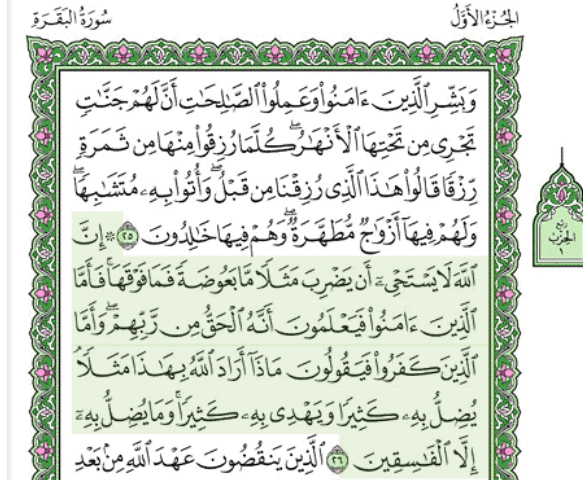 سُورَةُ البَقَرَةِ
الجُزْءُ الأَوَّلُ
وَبَشِّرِ ٱلَّذِينَ ءَامَنُوا۟ وَعَمِلُوا۟ ٱلصَّٰلِحَٰتِ أَنَّ لَهُمْ جَنَّٰتٍ
تَجْرِى مِن تَحْتِهَا ٱلْأَنْهَٰرُ ۖ كُلَّمَا رُزِقُوا۟ مِنْهَا مِن ثَمَرَةٍ
رِّزْقًا قَالُوا۟ هَٰذَا ٱلَّذِى رُزِقْنَا مِن قَبْلُ ۖ وَأُتُوا۟ بِهِۦ مُتَشَٰبِهًا ۖ
وَلَهُمْ فِيهَآ أَزْوَٰجٌ مُّطَهَّرَةٌ ۖ وَهُمْ فِيهَا خَٰلِدُونَ ٢٥ ۞ إِنَّ
ٱللَّهَ لَا يَسْتَحْىِۦٓ أَن يَضْرِبَ مَثَلًا مَّا بَعُوضَةً فَمَا فَوْقَهَا ۚ فَأَمَّا
ٱلَّذِينَ ءَامَنُوا۟ فَيَعْلَمُونَ أَنَّهُ ٱلْحَقُّ مِن رَّبِّهِمْ ۖ وَأَمَّا
ٱلَّذِينَ كَفَرُوا۟ فَيَقُولُونَ مَاذَآ أَرَادَ ٱللَّهُ بِهَٰذَا مَثَلًا ۘ
يُضِلُّ بِهِۦ كَثِيرًا وَيَهْدِى بِهِۦ كَثِيرًا ۚ وَمَا يُضِلُّ بِهِۦٓ
إِلَّا ٱلْفَٰسِقِينَ ٢٦ ٱلَّذِينَ يَنقُضُونَ عَهْدَ ٱللَّهِ مِنۢ بَعْدِ
رُبْعُ
الحِزْبِ
١